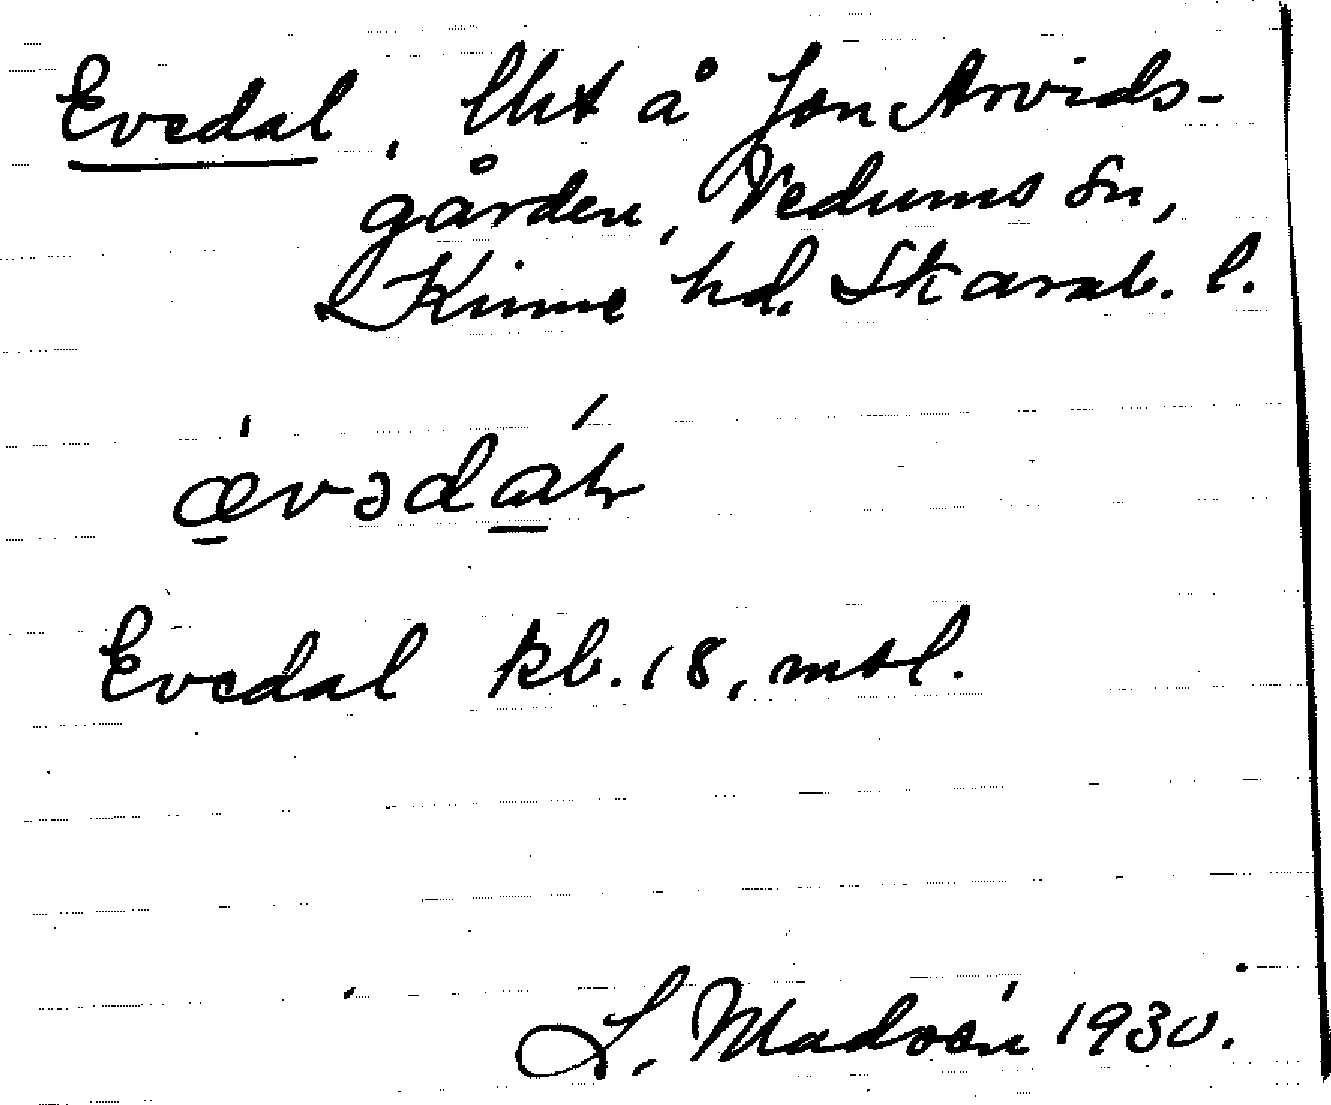 Evedal, lht å Jon Arvids-
gården, Vedums sn,
Kinne hd. Skarab. l.
ævədàł
Evedal kb. 18, mtl.
L. Madsén 1930.